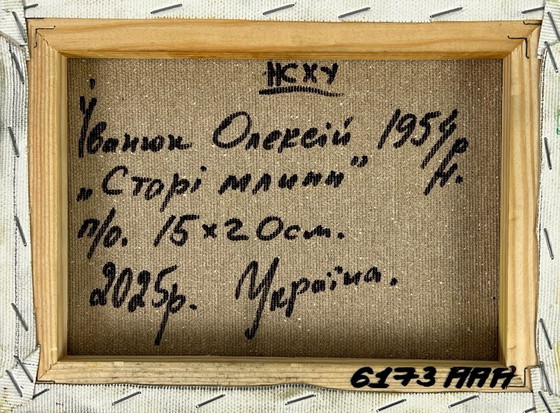 НСХУ
Іванюк Олексій 1954р
„Старі млини” н.
п/о. 15×20см.
2025р. Україна.
6173 AAA